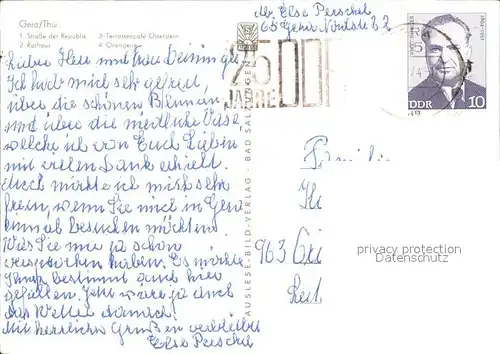 Gera/Thür.
1. Straße der Republik 3. Terrassencafé Osterstein
2. Rathaus 4. Orangerie
Abs. Else Perschel
65 Gera,
Liebe Frau und Herr
Ich habe mich sehr gefreut,
über die schönen Blumen
und über die niedliche Vase
welche ich von Euch Lieben
mit vielen Dank erhielt.
Auch möchte ich mich sehr
freuen, wenn Sie mich in Gera
einmal besuchen möchten.
Was Sie mir ja schon
versprochen haben. Es möchte
Ihnen bestimmt auch hier
gefallen. Jetzt wäre ja auch
das Wetter danach!
Mit herzlichen Grüßen verbleibt
Else Perschel
25
JAHRE DDR
DDR 10
AUSLESE-BILD-VERLAG - BAD SALZUNGEN
Familie
963
privacy protection
Datenschutz